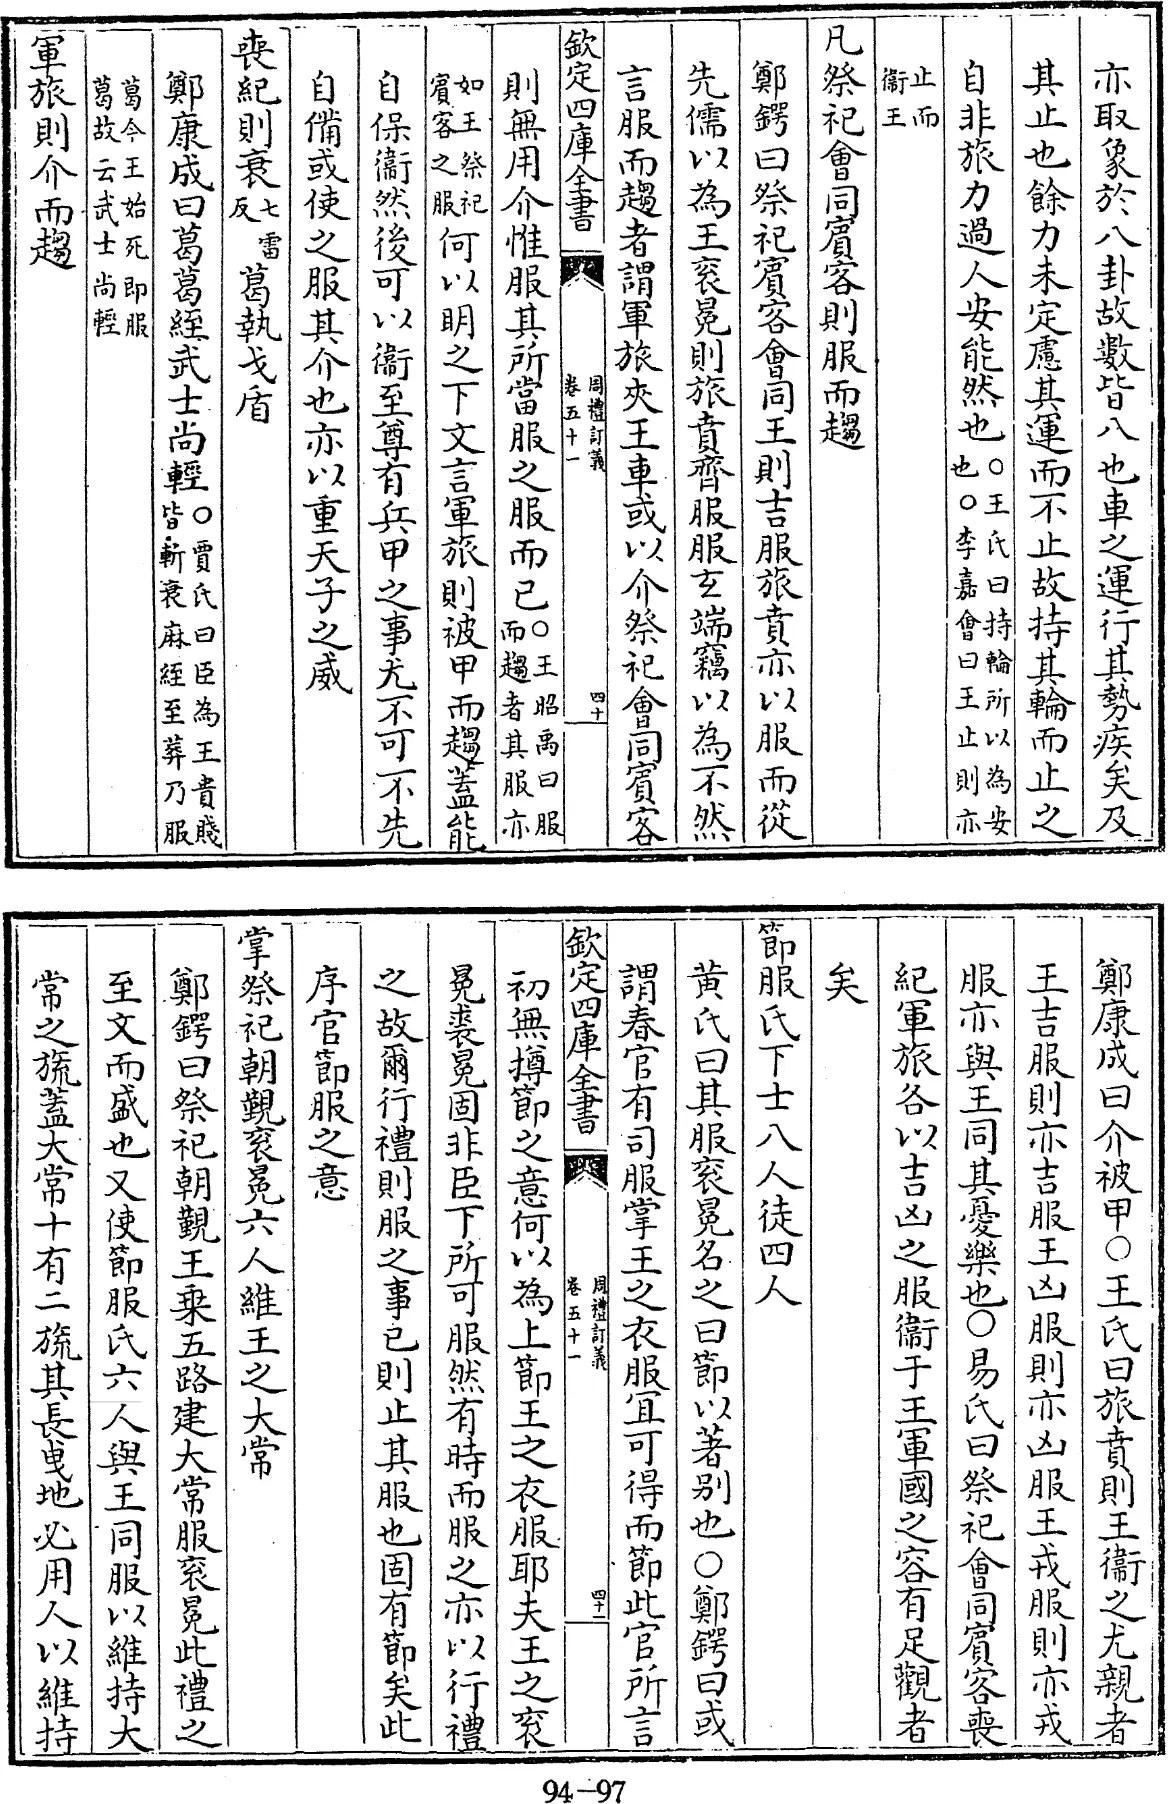 亦取象於八卦故數皆八也車之運行其勢疾矣及
其止也餘力未定慮其運而不止故持其輪而止之
自非旅力過人安能然也○王氏曰持輪所以為安也○李嘉會曰王止則亦
止而衞王
凡祭祀會同賓客則服而趨
鄭鍔曰祭祀賓客會同王則吉服旅賁亦以服而從
先儒以為王衮冕則旅賁齊服服玄端竊以為不然
言服而趨者謂軍旅夾王車或以介祭祀會同賓客
欽定四庫全書 周禮訂義卷五十一 四十
則無用介惟服其所當服之服而已○王昭禹曰服而趨者其服亦
如王祭祀賓客之服何以明之下文言軍旅則被甲而趨蓋能
自保衞然後可以衞至尊有兵甲之事尤不可不先
自備或使之服其介也亦以重天子之威
喪紀則衰七雷反葛執戈盾
鄭康成曰葛葛絰武士尚輕○賈氏曰臣為王貴賤皆斬衰麻絰至葬乃服
葛今王始死即服葛故云武士尚輕
軍旅則介而趨
鄭康成曰介被甲○王氏曰旅賁則王衞之尤親者
王吉服則亦吉服王凶服則亦凶服王戎服則亦戎
服亦與王同其憂樂也○易氏曰祭祀會同賓客喪
紀軍旅各以吉凶之服衞于王軍國之容有足觀者
矣
節服氏下士八人徒四人
黄氏曰其服衮冕名之曰節以著别也○鄭鍔曰或
謂春官有司服掌王之衣服宜可得而節此官所言
欽定四庫全書 周禮訂義卷五十一 四十一
初無撙節之意何以為上節王之衣服耶夫王之衮
冕裘冕固非臣下所可服然有時而服之亦以行禮
之故爾行禮則服之事已則止其服也固有節矣此
序官節服之意
掌祭祀朝覲衮冕六人維王之大常
鄭鍔曰祭祀朝覲王乗五路建大常服衮冕此禮之
至文而盛也又使節服氏六人與王同服以維持大
常之旒蓋大常十有二旒其長曳地必用人以維持
94-97